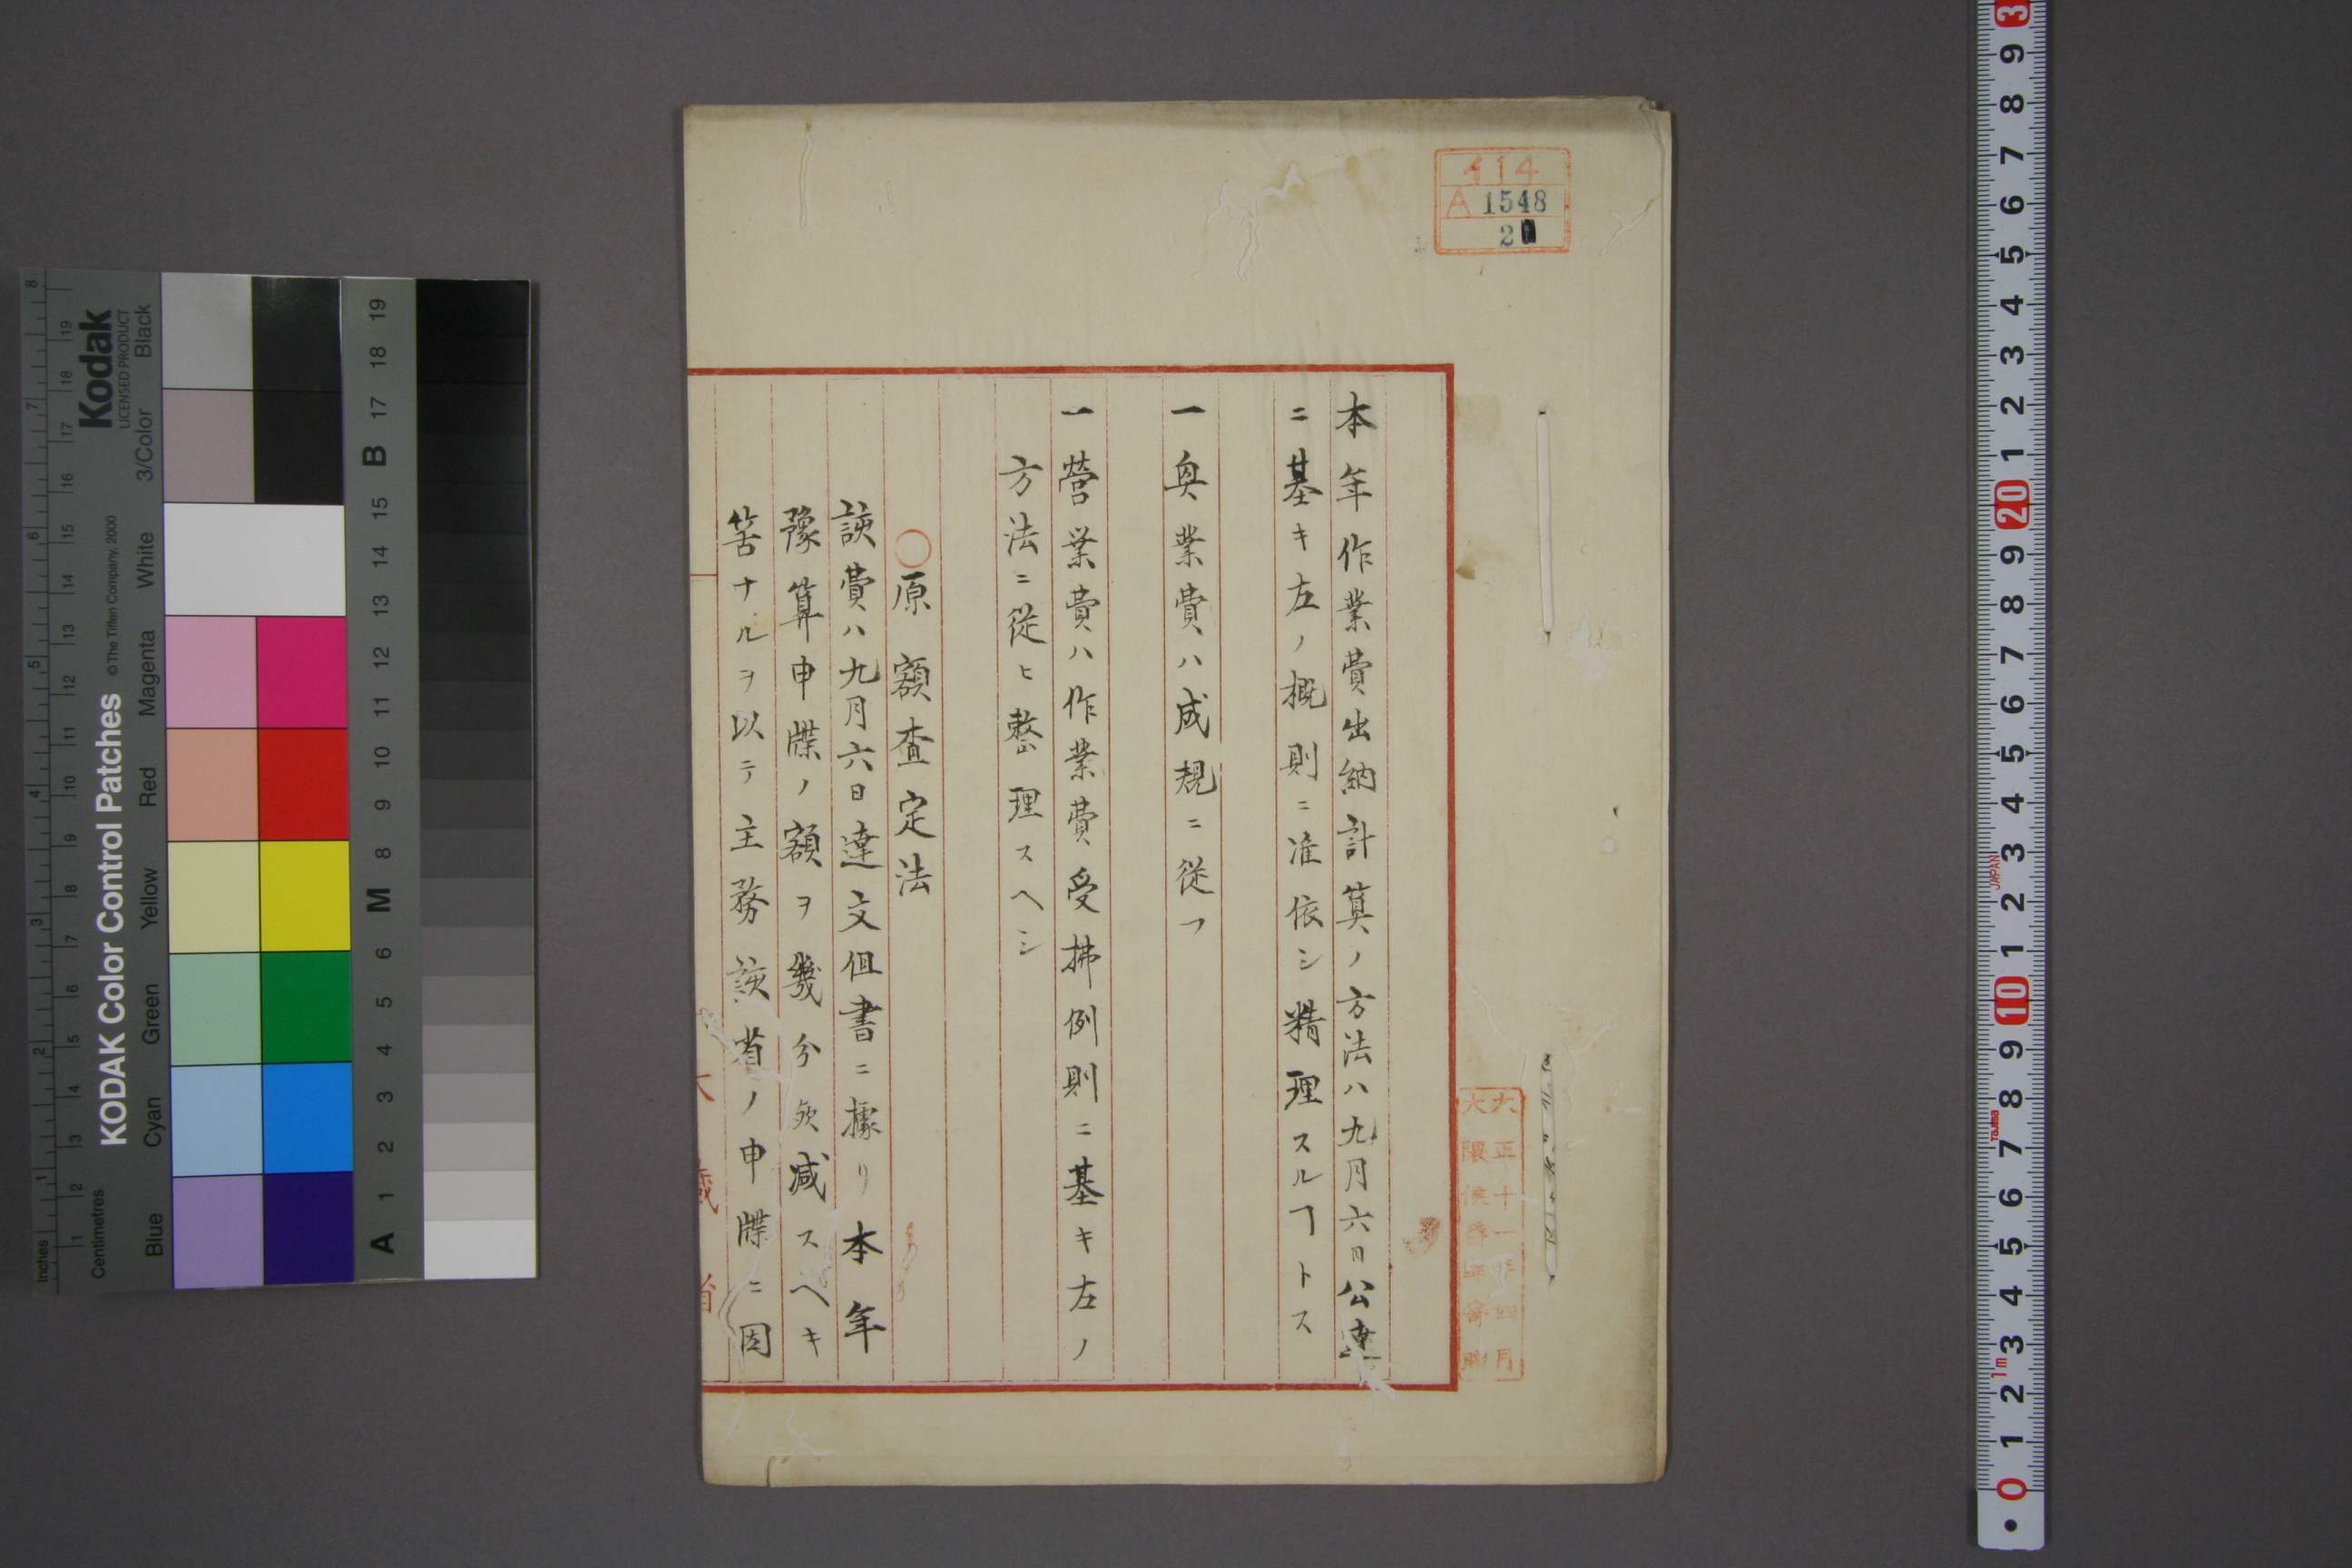 414
A 1548
2
大正十一年四月
大隈侯爵家寄贈
本年作業費出納計算ノ方法ハ九月六日公達
ニ基キ左ノ概則ニ准依シ精理スルヿトス
一興業費ハ成規ニ従フ
一営業費ハ作業費受拂例則ニ基キ左ノ
方法ニ従ヒ整理スヘシ
○原額査定法
該費ハ九月六日達文但書ニ據リ本年
豫算申牒ノ額ヲ幾分欤減スヘキ
筈ナルヲ以テ主務該省ノ申牒ニ因
大蔵省
KODAK Color Control Patches
©The Tiffen Company, 2000
Kodak
LICENSED PRODUCT
Inches
Centimetres
Blue
Cyan
Green
Yellow
Red
Magenta
White
3/Color
Black
A 1 2 3 4 5 6 M 8 9 10 11 12 13 14 15 B 17 18 19
JAPAN
Tajima
1m